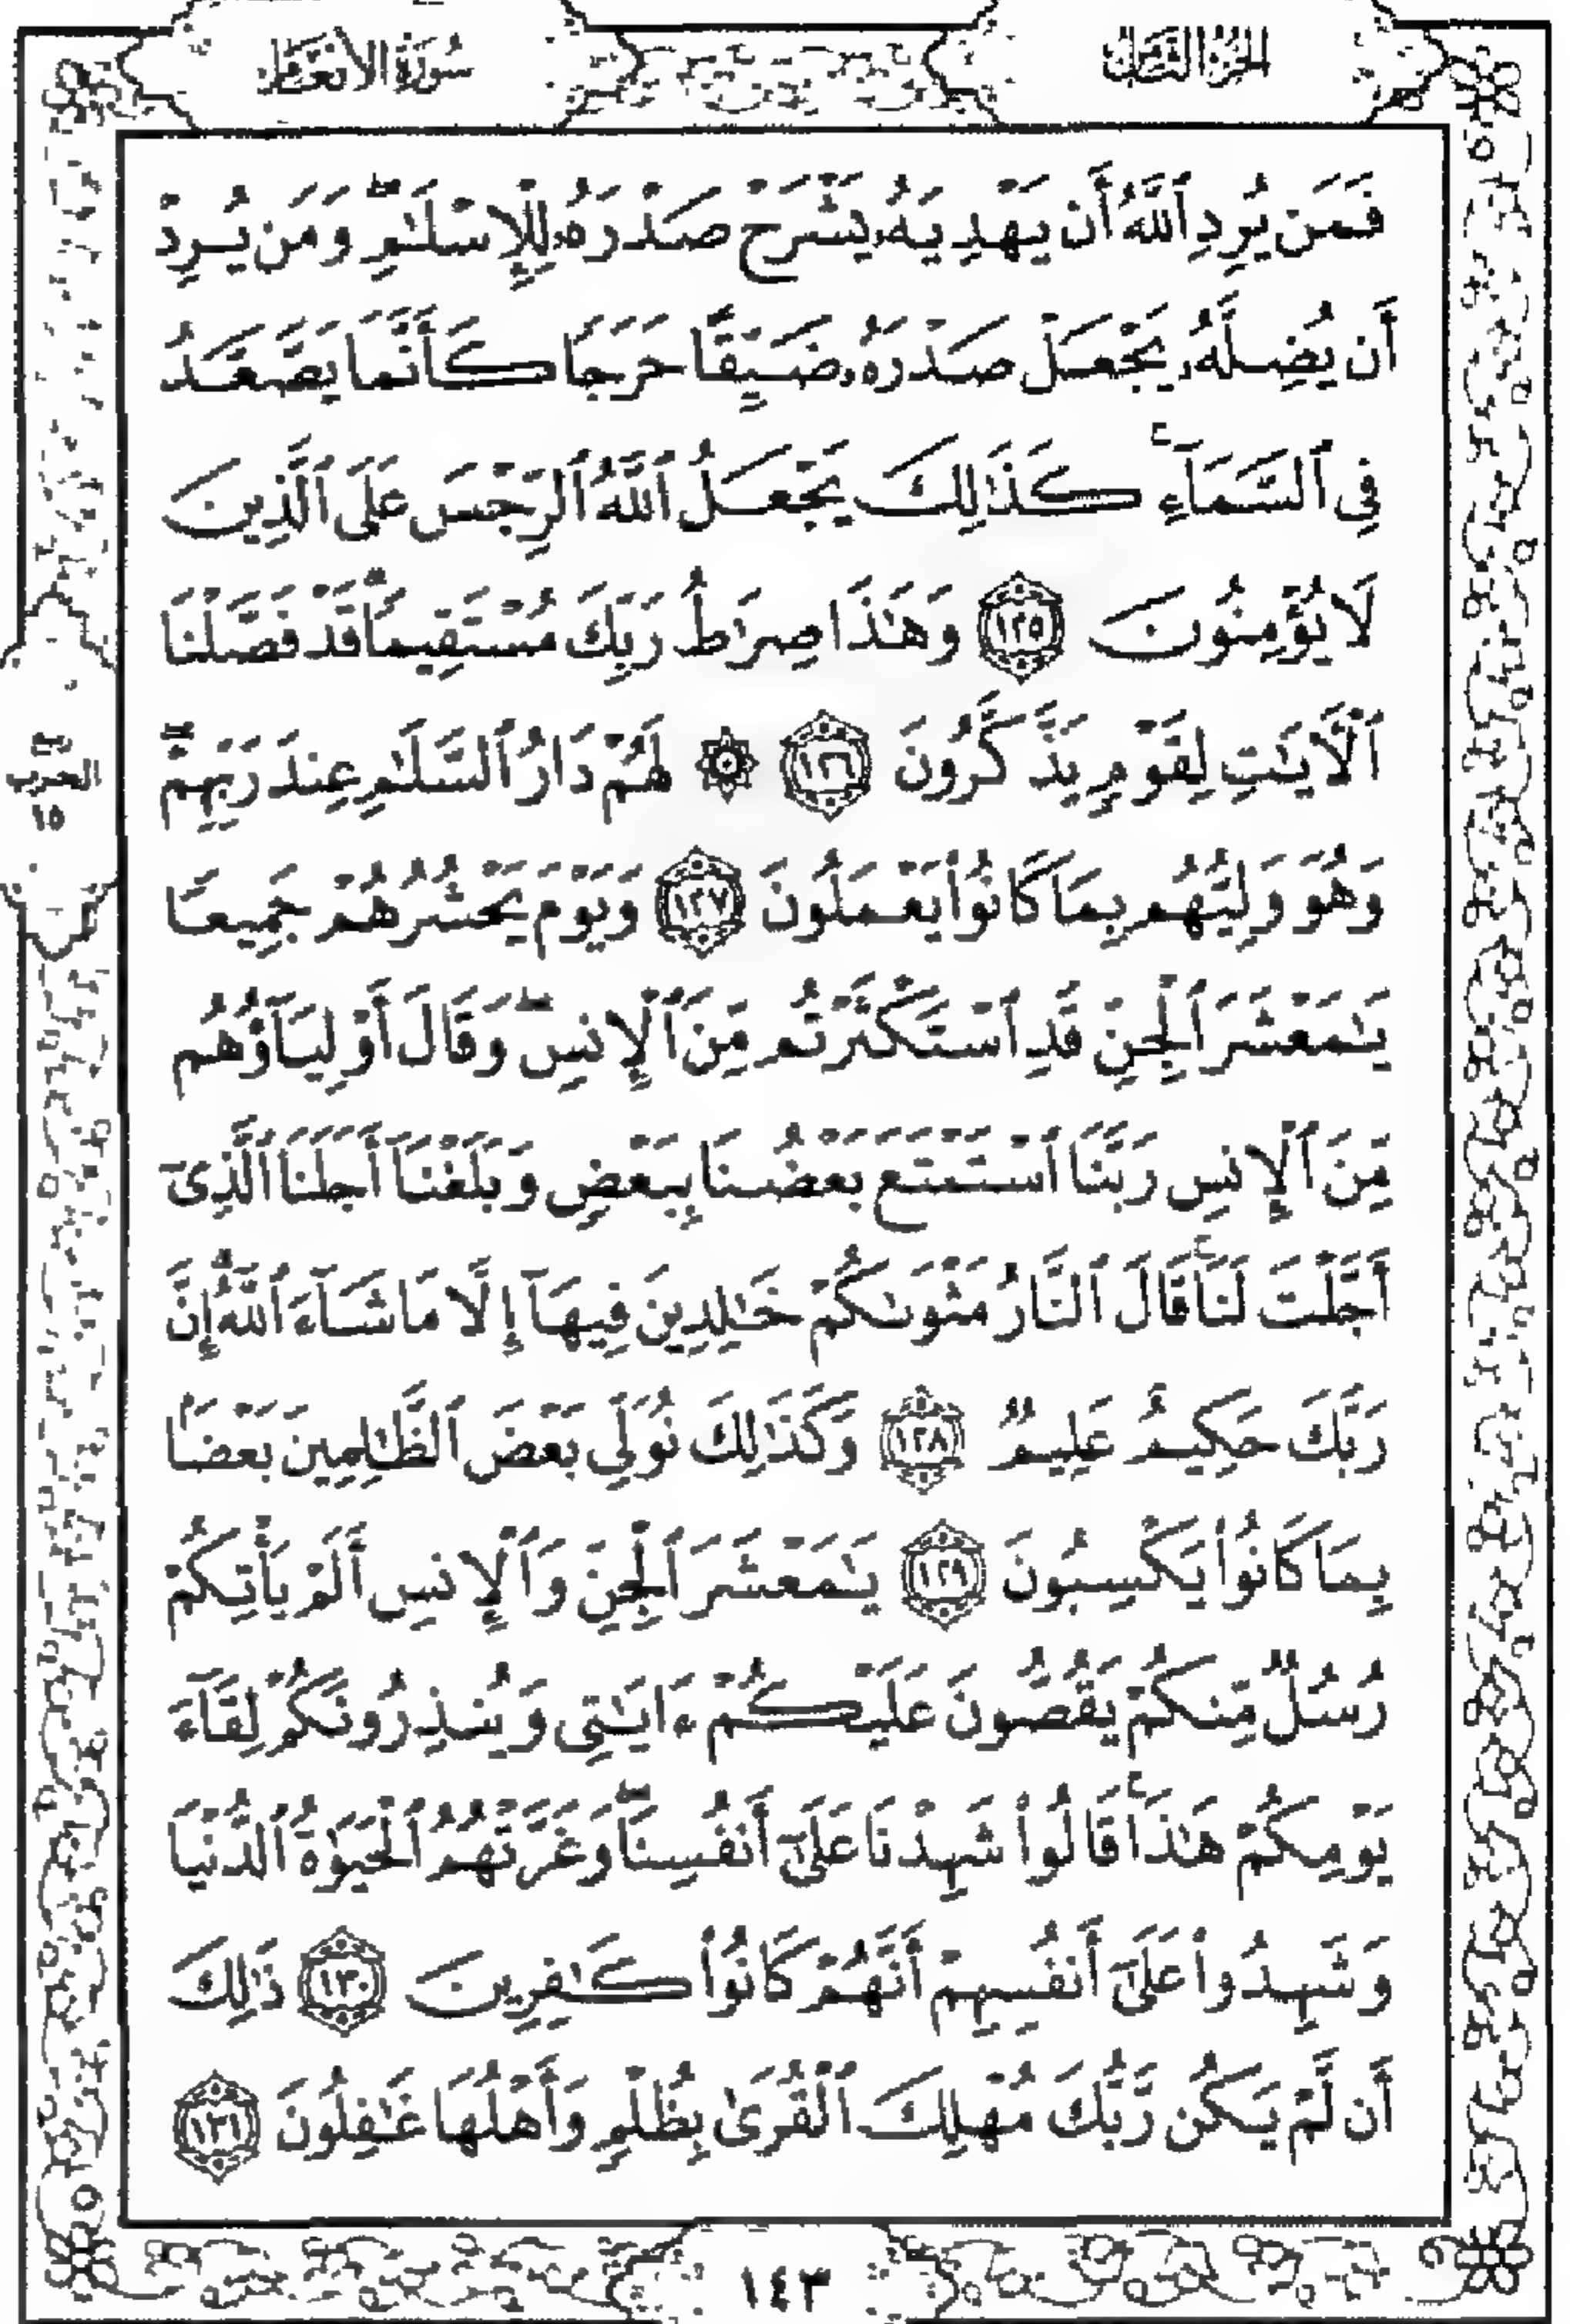 الجزء الثامن
سورة الأنعام
فَمَن يُرِدِ ٱللَّهُ أَن يَهْدِيَهُۥ يَشْرَحْ صَدْرَهُۥ لِلْإِسْلَـٰمِ ۖ وَمَن يُرِدْ
أَن يُضِلَّهُۥ يَجْعَلْ صَدْرَهُۥ ضَيِّقًا حَرَجًا كَأَنَّمَا يَصَّعَّدُ
فِى ٱلسَّمَآءِ ۚ كَذَٰلِكَ يَجْعَلُ ٱللَّهُ ٱلرِّجْسَ عَلَى ٱلَّذِينَ
لَا يُؤْمِنُونَ ١٢٥ وَهَـٰذَا صِرَٰطُ رَبِّكَ مُسْتَقِيمًا ۗ قَدْ فَصَّلْنَا
ٱلْـَٔايَـٰتِ لِقَوْمٍ يَذَّكَّرُونَ ١٢٦ ۞ لَهُمْ دَارُ ٱلسَّلَـٰمِ عِندَ رَبِّهِمْ ۖ
الحزب
١٥
وَهُوَ وَلِيُّهُم بِمَا كَانُوا۟ يَعْمَلُونَ ١٢٧ وَيَوْمَ يَحْشُرُهُمْ جَمِيعًا
يَـٰمَعْشَرَ ٱلْجِنِّ قَدِ ٱسْتَكْثَرْتُم مِّنَ ٱلْإِنسِ ۖ وَقَالَ أَوْلِيَآؤُهُم
مِّنَ ٱلْإِنسِ رَبَّنَا ٱسْتَمْتَعَ بَعْضُنَا بِبَعْضٍ وَبَلَغْنَآ أَجَلَنَا ٱلَّذِىٓ
أَجَّلْتَ لَنَا ۚ قَالَ ٱلنَّارُ مَثْوَىٰكُمْ خَـٰلِدِينَ فِيهَآ إِلَّا مَا شَآءَ ٱللَّهُ ۗ إِنَّ
رَبَّكَ حَكِيمٌ عَلِيمٌ ١٢٨ وَكَذَٰلِكَ نُوَلِّى بَعْضَ ٱلظَّـٰلِمِينَ بَعْضًۢا
بِمَا كَانُوا۟ يَكْسِبُونَ ١٢٩ يَـٰمَعْشَرَ ٱلْجِنِّ وَٱلْإِنسِ أَلَمْ يَأْتِكُمْ
رُسُلٌ مِّنكُمْ يَقُصُّونَ عَلَيْكُمْ ءَايَـٰتِى وَيُنذِرُونَكُمْ لِقَآءَ
يَوْمِكُمْ هَـٰذَا ۚ قَالُوا۟ شَهِدْنَا عَلَىٰٓ أَنفُسِنَا ۖ وَغَرَّتْهُمُ ٱلْحَيَوٰةُ ٱلدُّنْيَا
وَشَهِدُوا۟ عَلَىٰٓ أَنفُسِهِمْ أَنَّهُمْ كَانُوا۟ كَـٰفِرِينَ ١٣٠ ذَٰلِكَ
أَن لَّمْ يَكُن رَّبُّكَ مُهْلِكَ ٱلْقُرَىٰ بِظُلْمٍ وَأَهْلُهَا غَـٰفِلُونَ ١٣١
١٤٣